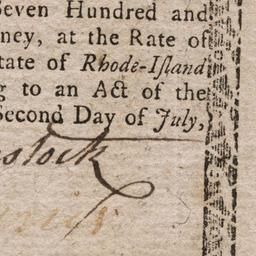 Seven Hundred and
ney, at the Rate of
tate of Rhode-Island
g to an Act of the
Second Day of July,
stock